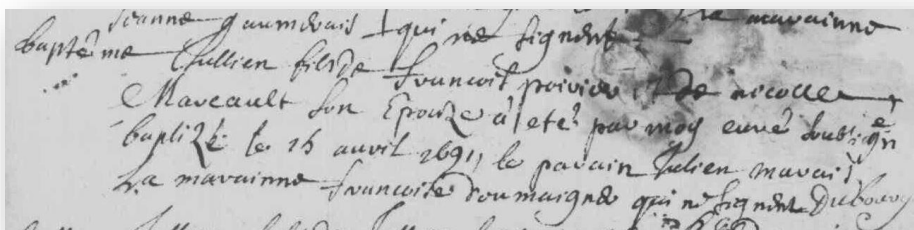 Jeanne qui ne signent la marainne
baptême Jullien fils de francois poirier et de nicolle
Mareault son Epouze a eté par moy curé soubsigné
baptizé le 15 auril 1691, le parain Julien marais
La maraine francoise doumaigne qui ne signent Dubourg